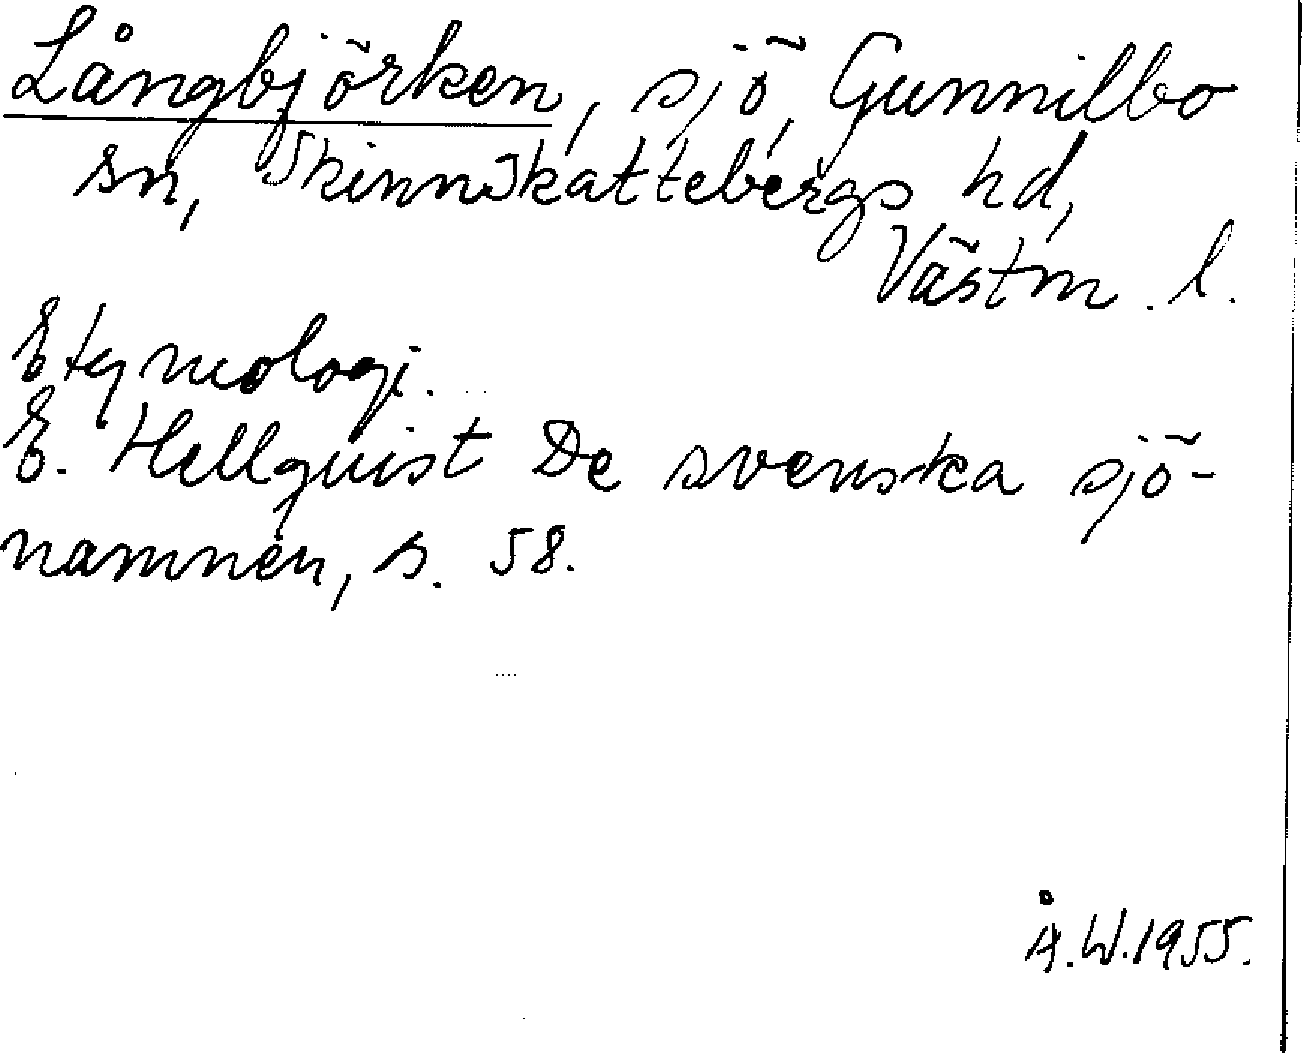 Långbjörken, sjö, Gunnilbo
sn, Skinnskattebergs hd,
Västm. l.
Etymologi.
E. Hellquist De svenska sjö-
namnen, s. 58.
Å.W.1955.